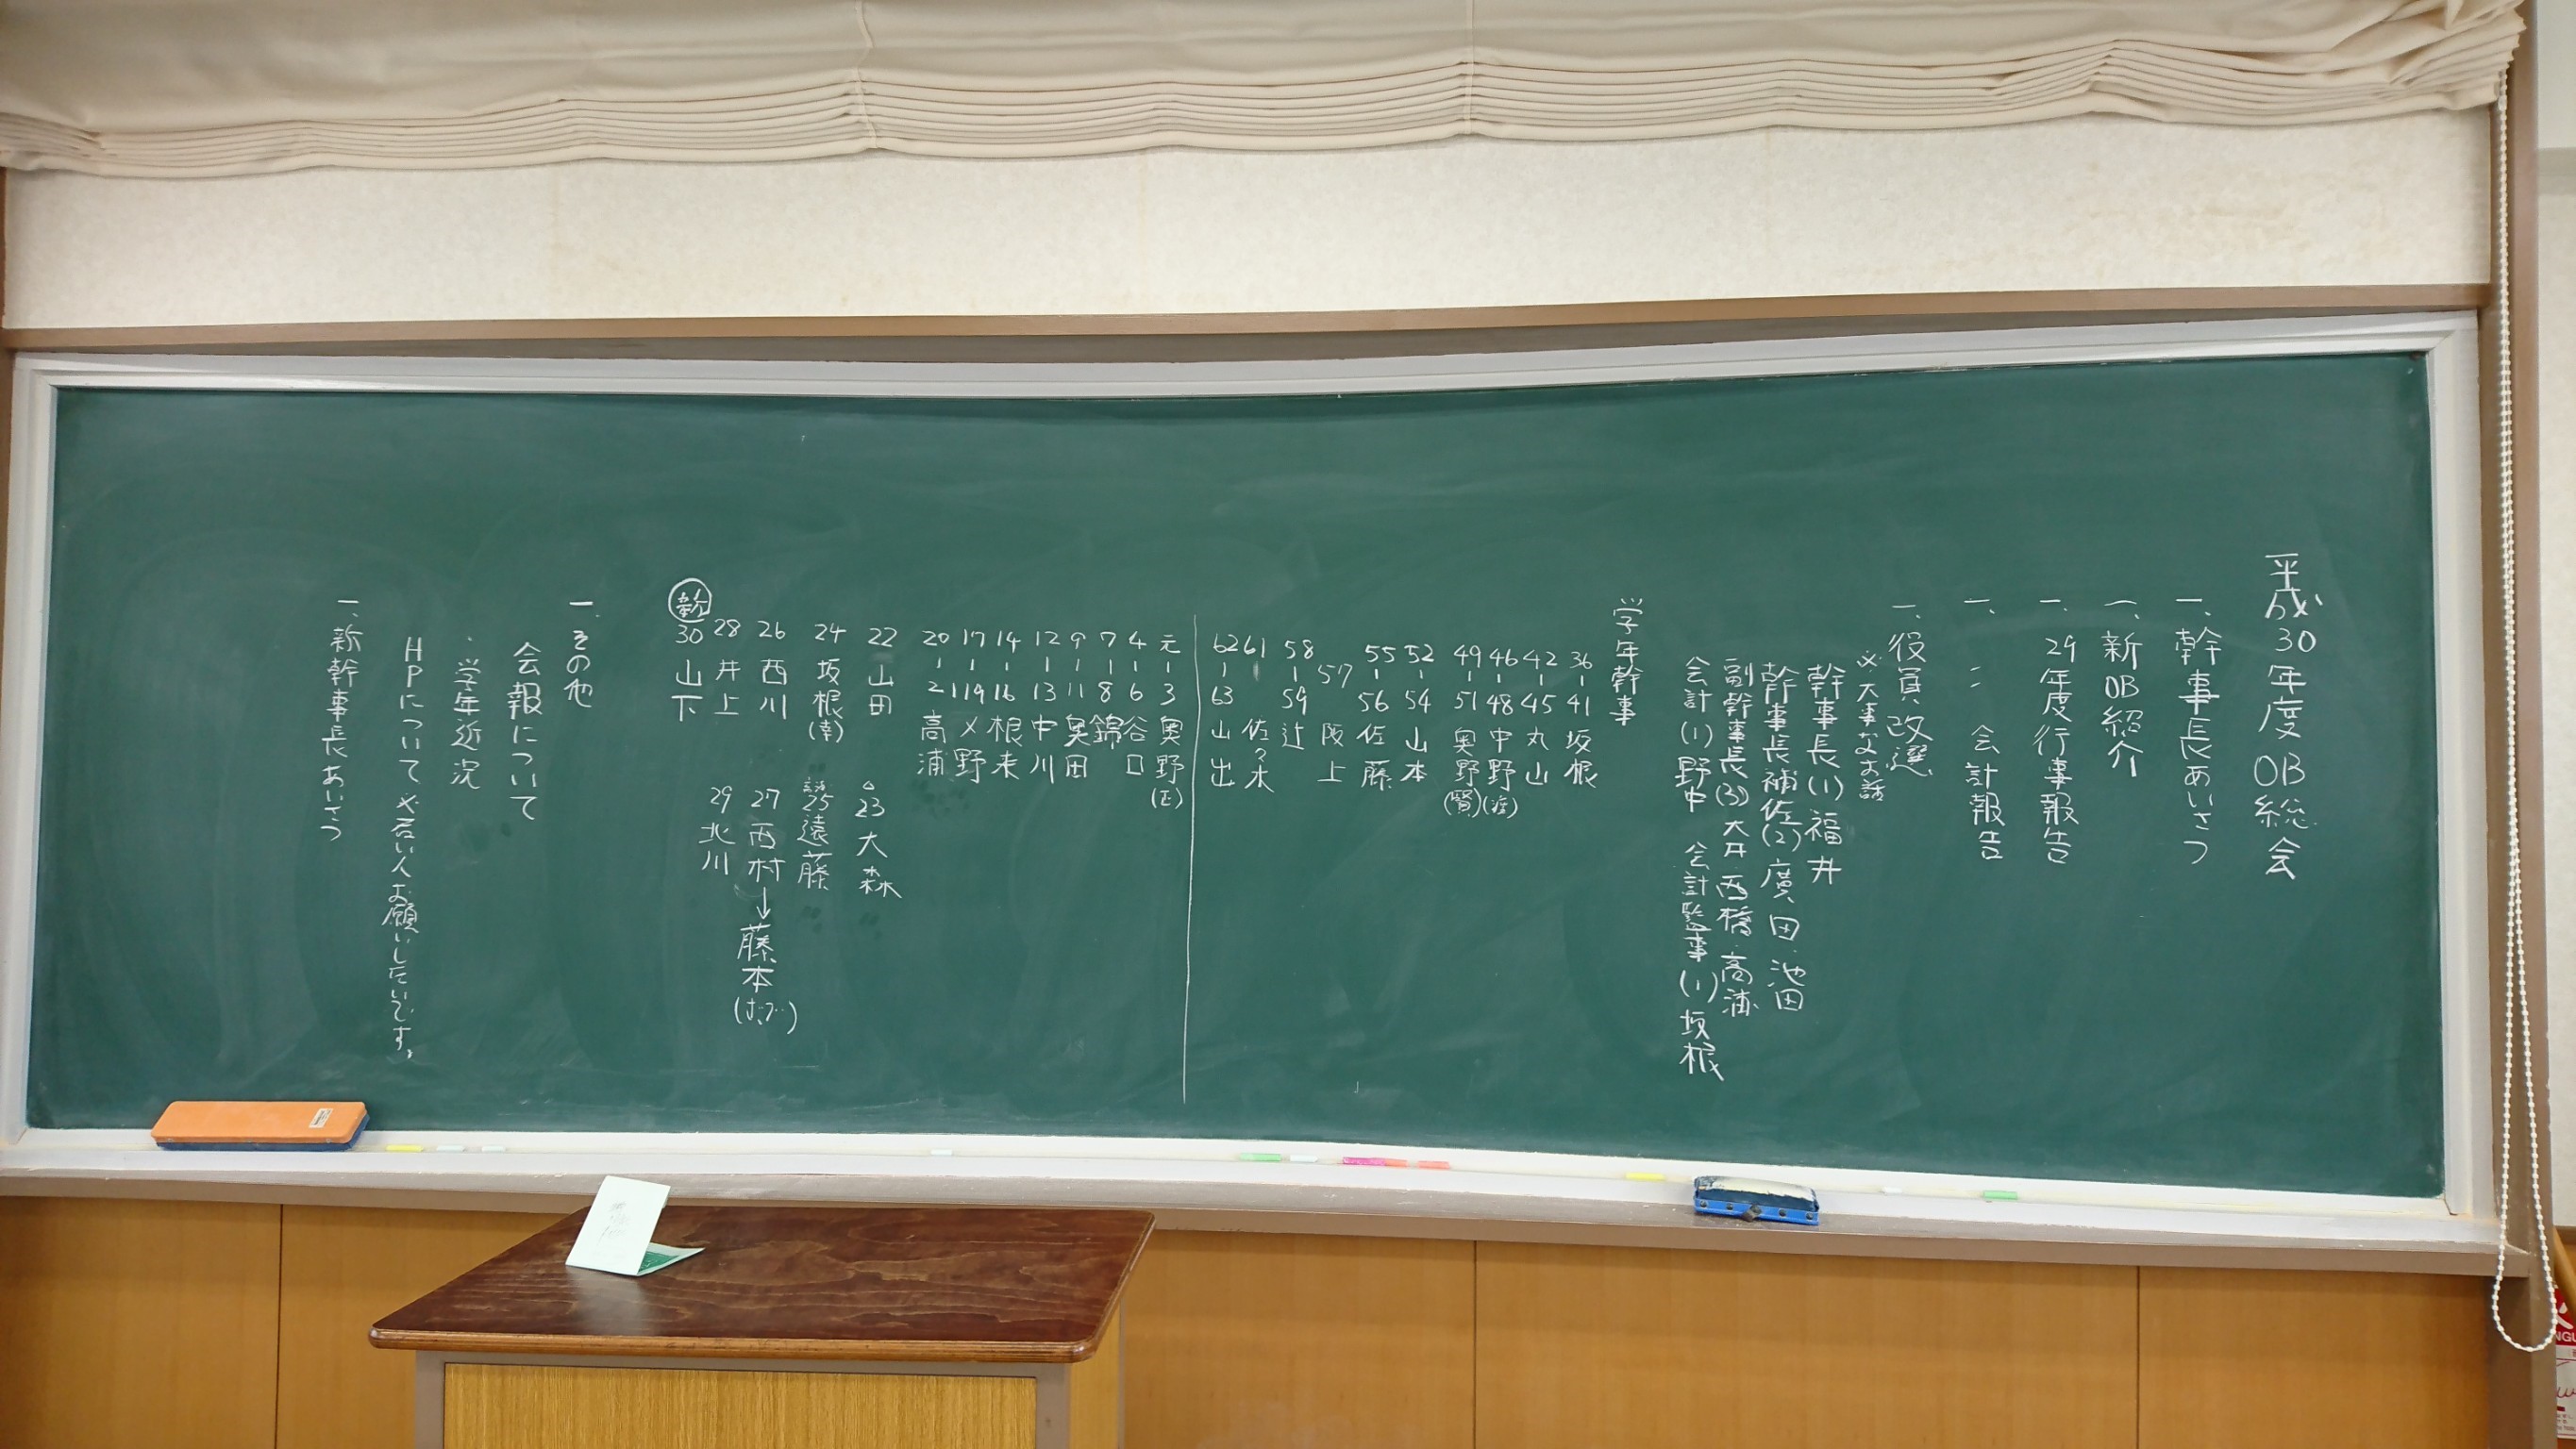 平成30年度OB総会
一、幹事長あいさつ
一、新OB紹介
一、29年度行事報告
一、〃 会計報告
一、役員改選
※大事なお話
幹事長(1)福井
幹事長補佐(2)廣田・池田
副幹事長(3)大井 西橋・高浦
会計(1)野中 会計監事(1)坂根
学年幹事
36-41 坂根
42-45 丸山
46-48 中野
49-51 奥野(賢)
52-54 山本
55-56 佐藤
57 阪上
58-59 辻
61 佐々木
62-63 山出
元-3 奥野(正)
4-6 谷口
7-8 錦
9-11 奥田
12-13 中川
14-16 根来
17-19 〆野
20-21 高浦
22 山田 23 大森
24 坂根(幸) 25 遠藤
26 西川 27 西村→藤本(ボブ)
28 井上 29 北川
新 30 山下
一、その他
会報について
・学年近況
HPについて ※若い人お願いしたいです。
一、新幹事長あいさつ